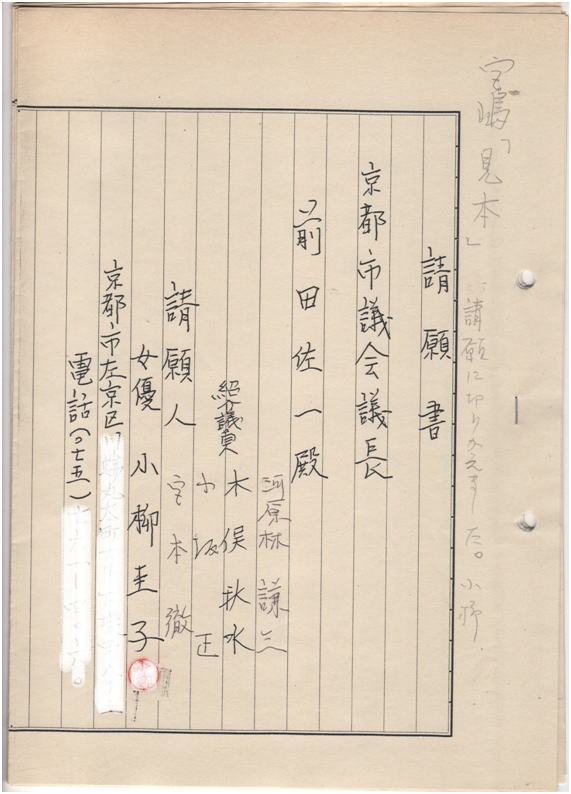 宮嶋「見本」
請願に切りかえました。小柳
請願書
京都市議会議長
前田佐一殿
河原林謙三
紹介議員 木俣秋水
小坂正
宮本徹
請願人
女優 小柳圭子
京都市左京区
電話(〇七五)